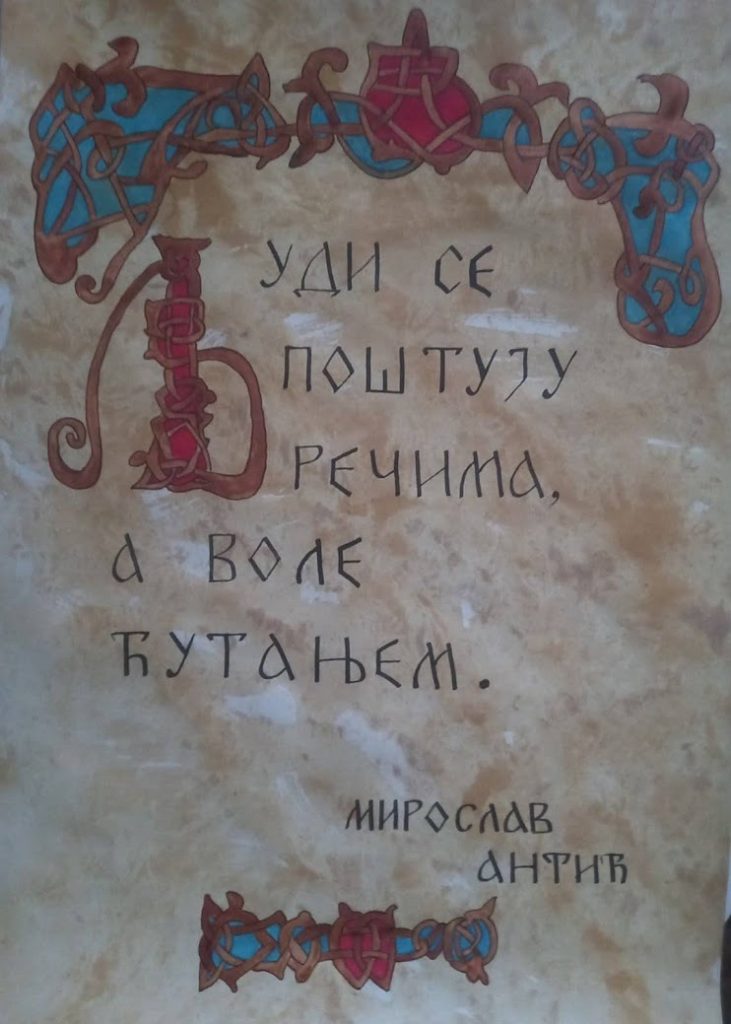 Људи се
поштују
речима,
а воле
ћутањем.
Мирослав
Антић